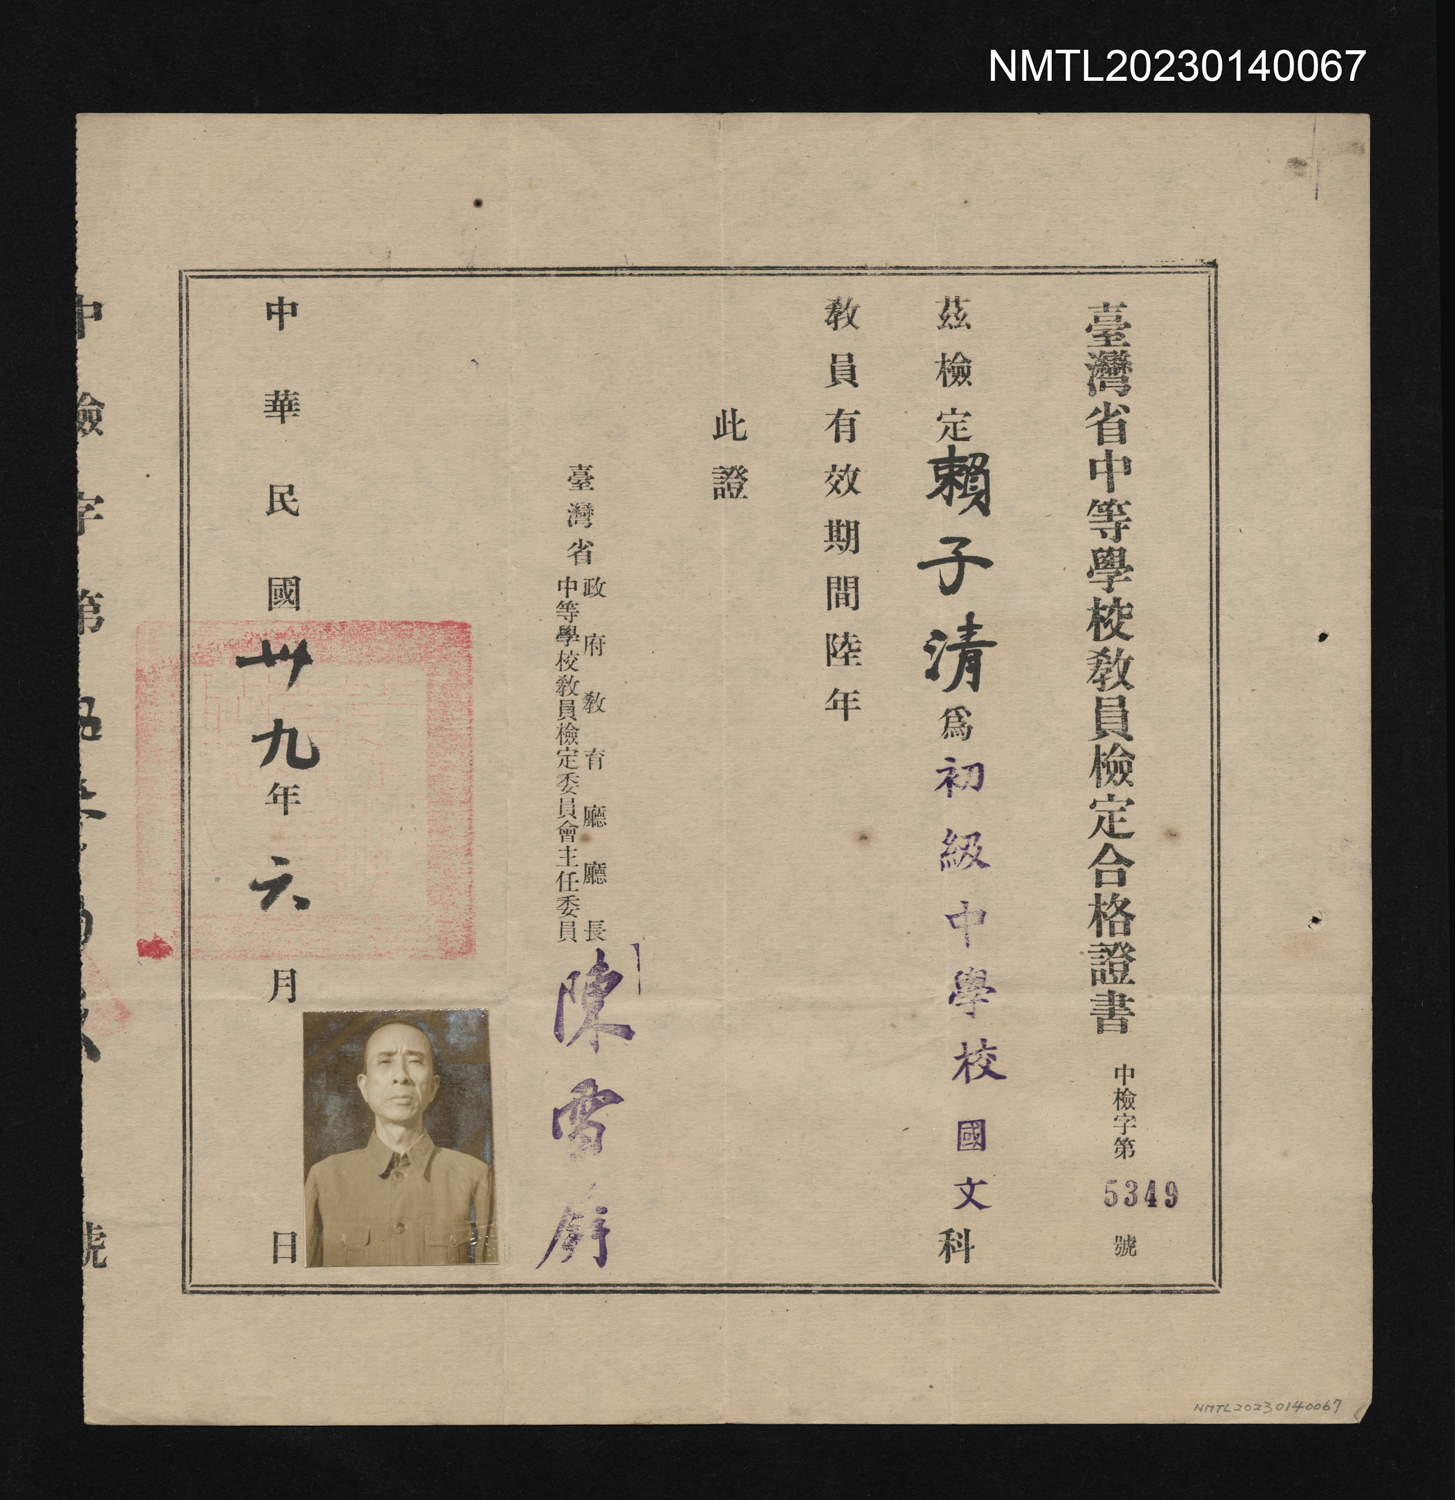 NMTL20230140067
臺灣省中等學校教員檢定合格證書 中檢字第5349號
茲檢定賴子清爲初級中學校國文科
教員有效期間陸年
此證
臺灣省政府教育廳廳長
中等學校教員檢定委員會主任委員
陳雪屏
中華民國卅九年六月日
中檢字第
號
NMTL20230140067